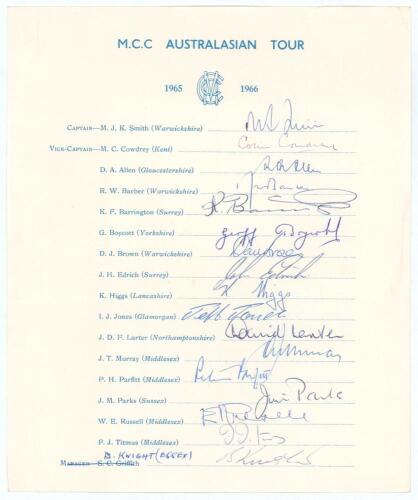 M.C.C AUSTRALASIAN TOUR
1965 1966
CAPTAIN—M. J. K. Smith (Warwickshire)
VICE-CAPTAIN—M. C. Cowdrey (Kent) Colin Cowdrey
D. A. Allen (Gloucestershire) D A Allen
R. W. Barber (Warwickshire)
K. F. Barrington (Surrey) K. Barrington
G. Boycott (Yorkshire) Geoff Boycott
D. J. Brown (Warwickshire) David Brown
J. H. Edrich (Surrey) John Edrich
K. Higgs (Lancashire) K Higgs
I. J. Jones (Glamorgan) Jeff Jones
J. D. F. Larter (Northamptonshire) David Larter
J. T. Murray (Middlesex) J T Murray
P. H. Parfitt (Middlesex) Peter Parfitt
J. M. Parks (Sussex) Jim Parks
W. E. Russell (Middlesex) Eric Russell
F. J. Titmus (Middlesex)
B. KNIGHT (ESSEX) B Knight
MANAGER S. C. Griffith